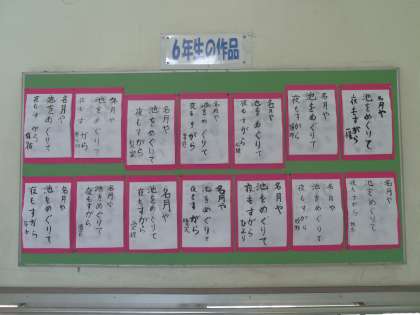 6年生の作品
名月や
池をめぐりて
夜もすがら
名月や
池をめぐりて
夜もすがら
名月や
池をめぐりて
夜もすがら
名月や
池をめぐりて
夜もすがら
名月や
池をめぐりて
夜もすがら
名月や
池をめぐりて
夜もすがら
名月や
池をめぐりて
夜もすがら
名月や
池をめぐりて
夜もすがら
名月や
池をめぐりて
夜もすがら
ひより
名月や
池をめぐりて
夜もすがら
名月や
池をめぐりて
夜もすがら
名月や
池をめぐりて
夜もすがら
名月や
池をめぐりて
夜もすがら
名月や
池をめぐりて
夜もすがら